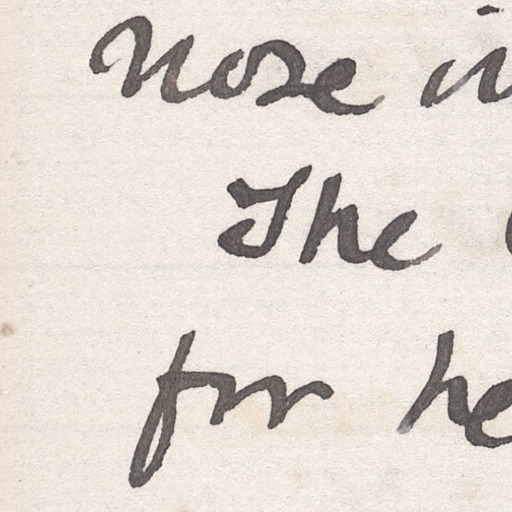 Nose in
The
for he